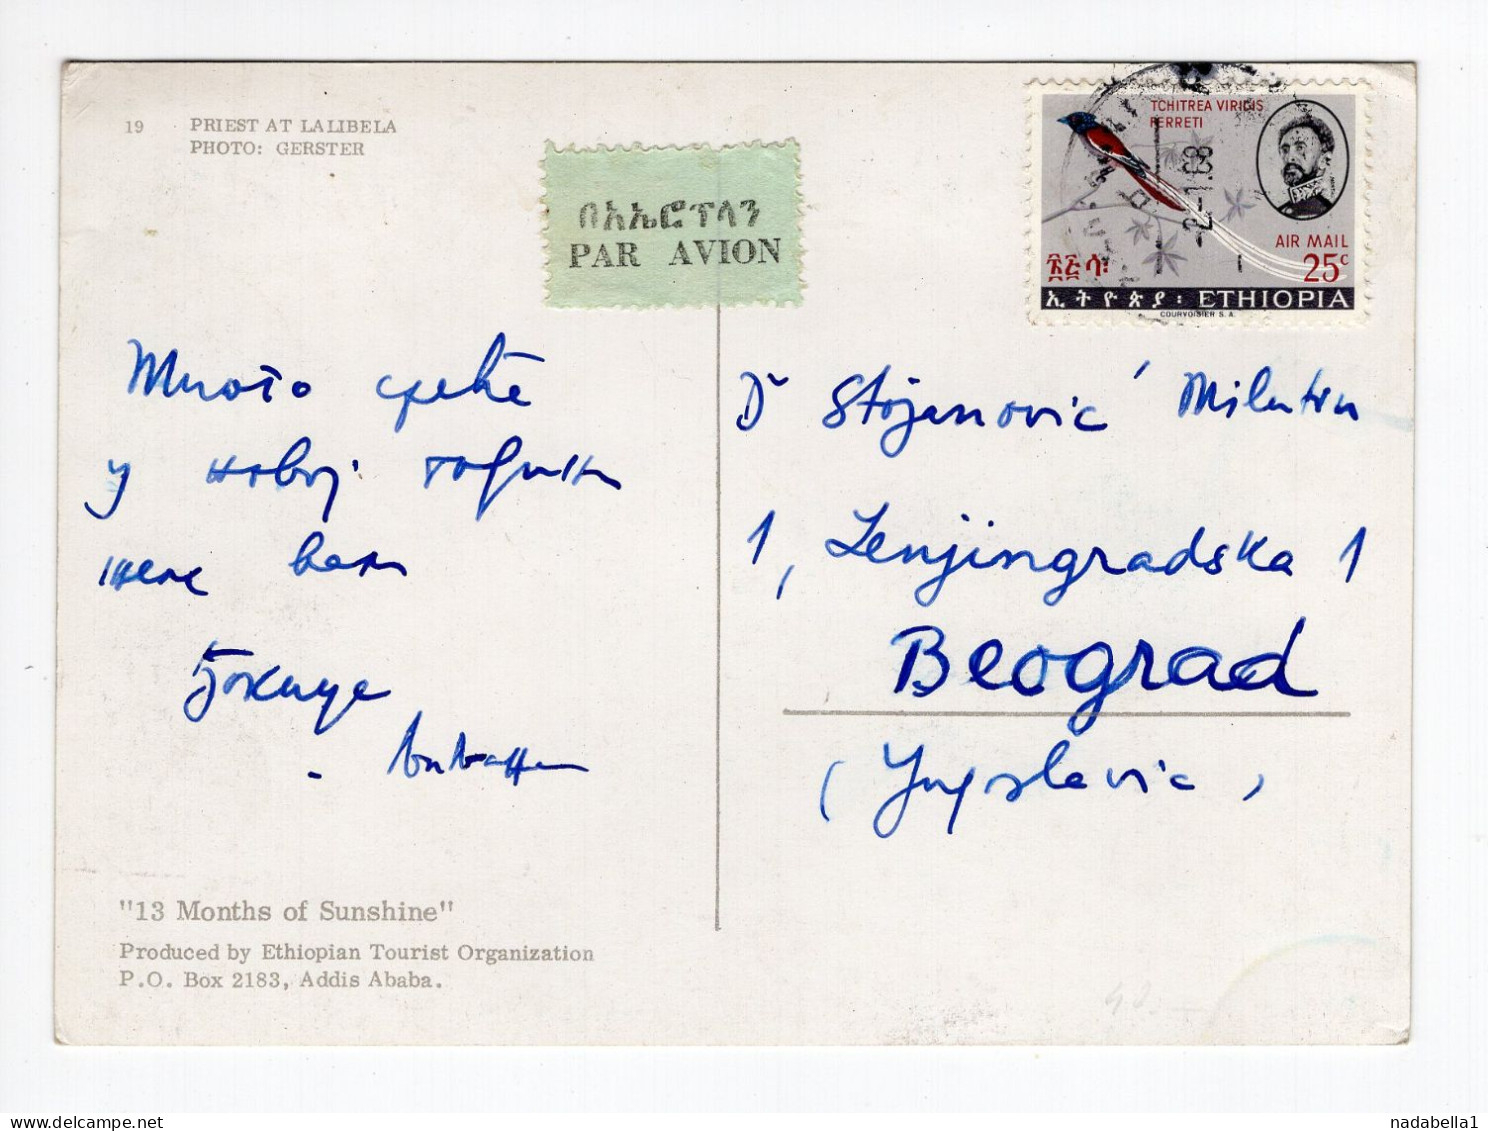 19 PRIEST AT LALIBELA
PHOTO: GERSTER
በአኤሮፕላን
PAR AVION
TCHITREA VIRIDIS
FERRETI
2-1.68
AIR MAIL
25c
፳፭ ሳ፡
ኢትዮጵያ፡ ETHIOPIA
COURVOISIER S. A.
Много среће
у новој години
желе вам
Dr Stojanović Milutin
1, Lenjingradska 1
Beograd
(Yugoslavia)
"13 Months of Sunshine"
Produced by Ethiopian Tourist Organization
P.O. Box 2183, Addis Ababa.
nadabella1